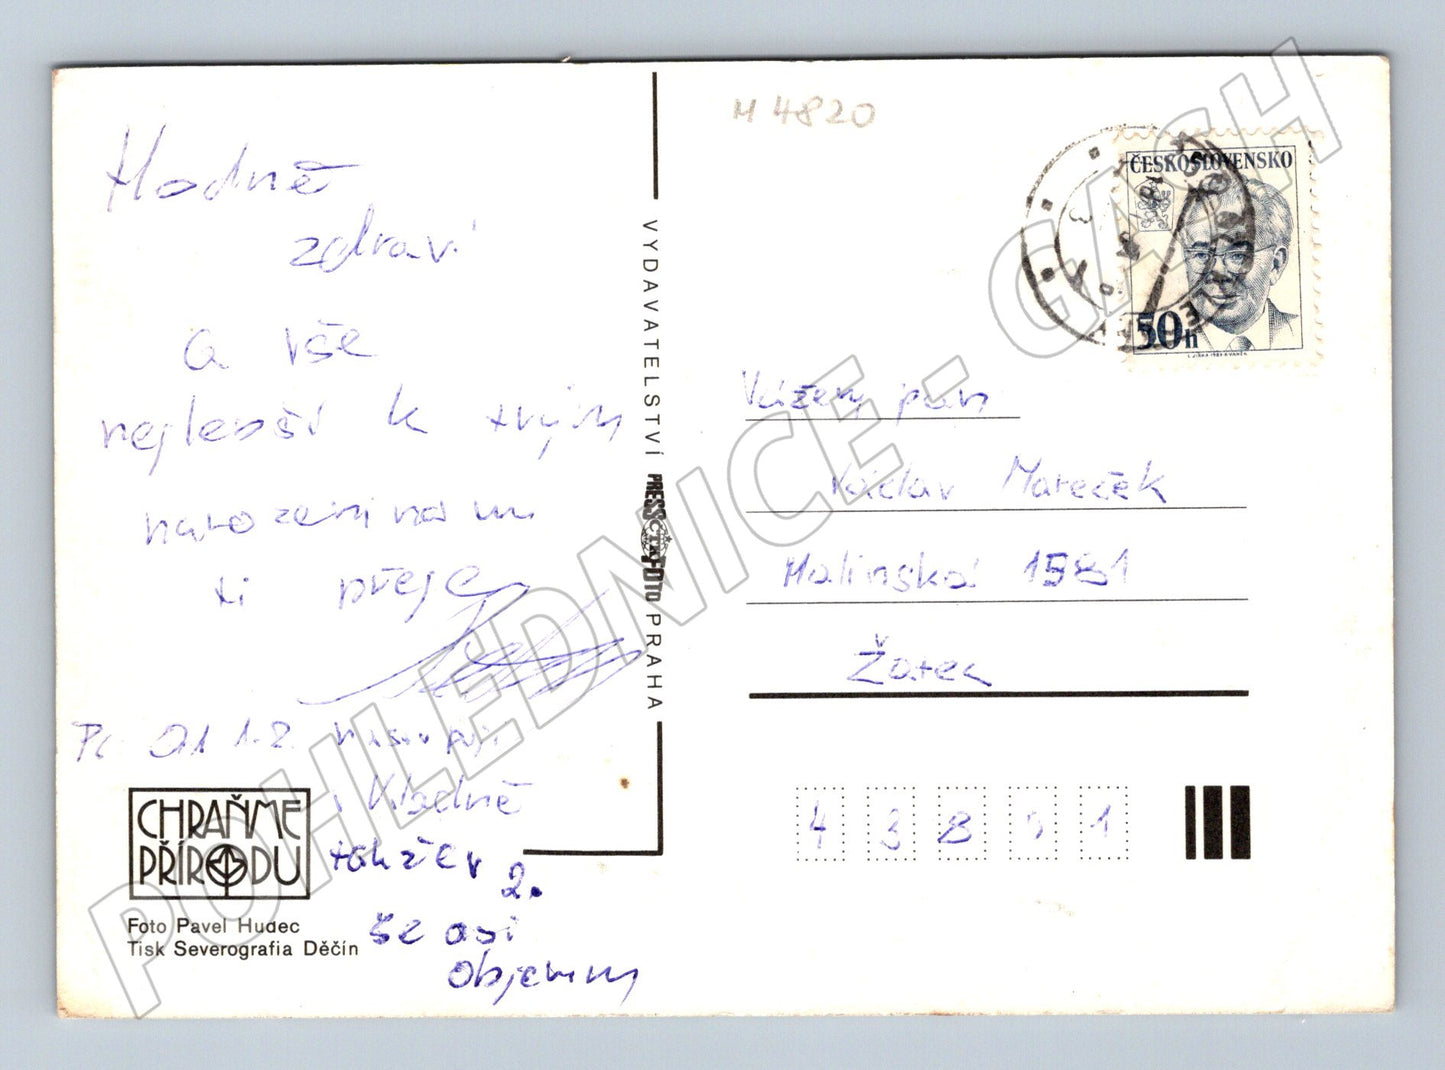 Hodně
zdraví
a vše
nejlepší k tvým
narozeninám
ti přeje
Od 1.2. nastupuji
v Kladně
takže v
2.
še asi
objevím
CHRAŇME
PŘÍRODU
Foto Pavel Hudec
Tisk Severografia Děčín
VYDAVATELSTVÍ PRESSFOTO PRAHA
ČTK
M 4820
ČESKOSLOVENSKO
50h
Vážený pan
Václav Mareček
Malinská 1581
Žatec
4 3 8 0 1
POHLEDNICE - GASH